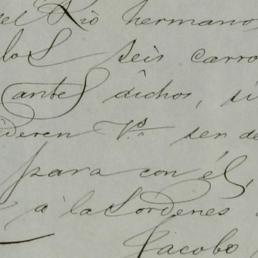 del Río hermano
los seis carro
antes dichos, si
deren V.ª ser de
para con él,
á las ordenes
Jacobo